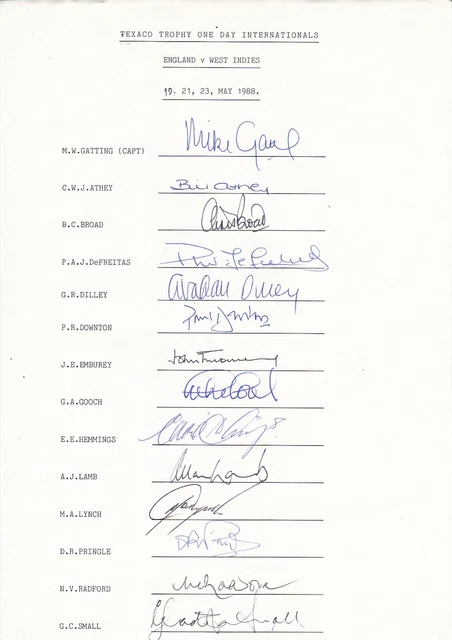 TEXACO TROPHY ONE DAY INTERNATIONALS
ENGLAND v WEST INDIES
19. 21, 23, MAY 1988.
M.W.GATTING (CAPT) Mike Gatting
C.W.J.ATHEY Bill Athey
B.C.BROAD Chris Broad
P.A.J.DeFREITAS
G.R.DILLEY Graham Dilley
P.R.DOWNTON Paul Downton
J.E.EMBUREY John Emburey
G.A.GOOCH
E.E.HEMMINGS
A.J.LAMB Allan Lamb
M.A.LYNCH
D.R.PRINGLE
N.V.RADFORD
G.C.SMALL Gladstone Small